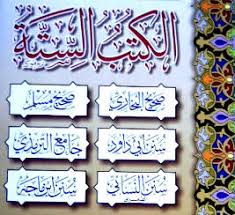 الكتب الستة
صحيح البخاري صحيح مسلم
سنن أبي داود جامع الترمذي
سنن النسائي سنن ابن ماجه